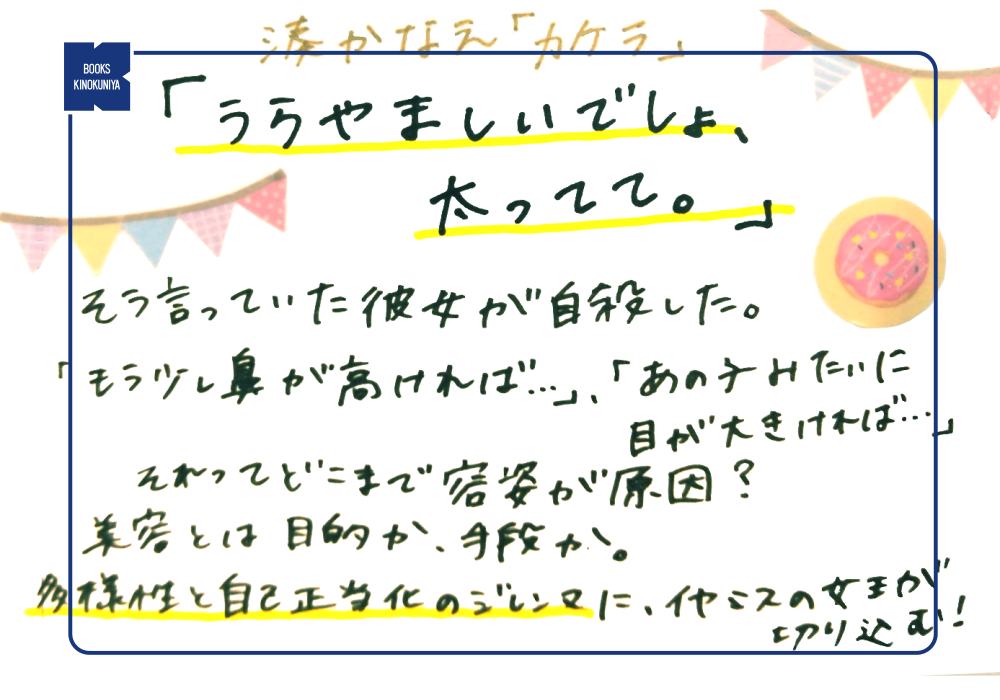 湊かなえ「カケラ」
BOOKS
KINOKUNIYA
「うらやましいでしょ、
太ってて。」
そう言っていた彼女が自殺した。
「もう少し鼻が高ければ…」、「あの子みたいに
目が大きければ…」
それってどこまで容姿が原因？
美容とは目的か、手段か。
多様性と自己正当化のジレンマに、イヤミスの女王が
切り込む！